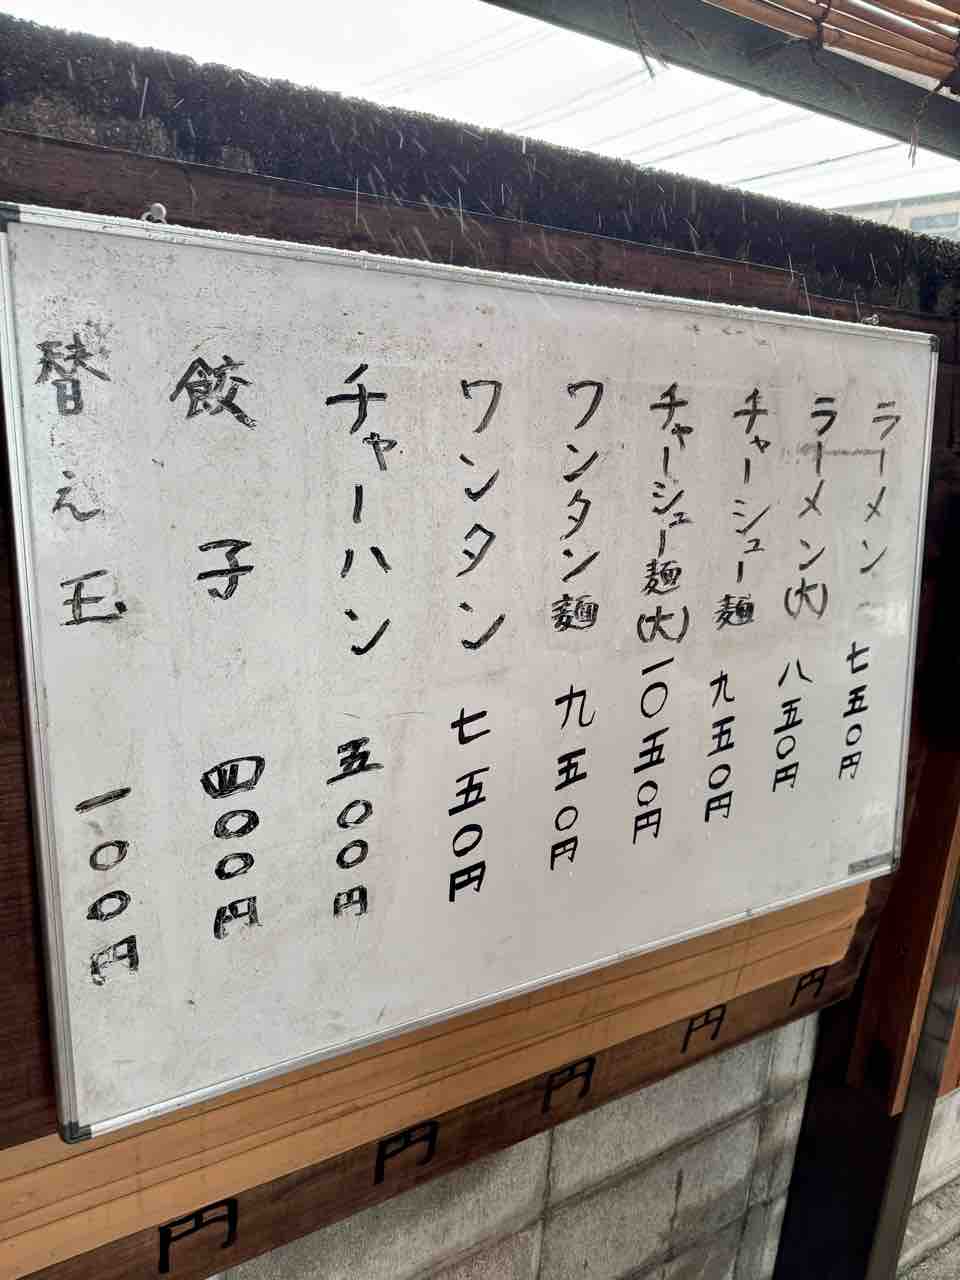 ラーメン 七五〇円
ラーメン(大) 八五〇円
チャーシュー麺 九五〇円
チャーシュー麺(大) 一〇五〇円
ワンタン麺 九五〇円
ワンタン 七五〇円
チャーハン 五〇〇円
餃子 四〇〇円
替え玉 一〇〇円
円
円
円
円
円